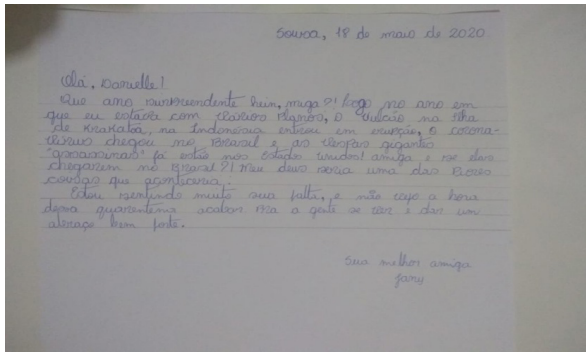 Sousa, 18 de maio de 2020
Olá, Danielle!
Que ano surpreendente hein, miga?! Logo no ano em
que eu estava com vários planos, o vulcão na ilha
de Krakatoa, na Indonésia entrou em erupção, o corona-
vírus chegou no Brasil e as vespas gigantes
"assassinas" já estão nos Estados Unidos! amiga e se elas
chegarem no Brasil?! Meu deus seria uma das Piores
coisas que aconticeria.
Estou sentindo muito sua falta, e não vejo a hora
dessa quarentena acabar pra a gente se ver e dar um
abraço bem forte.
Sua melhor amiga